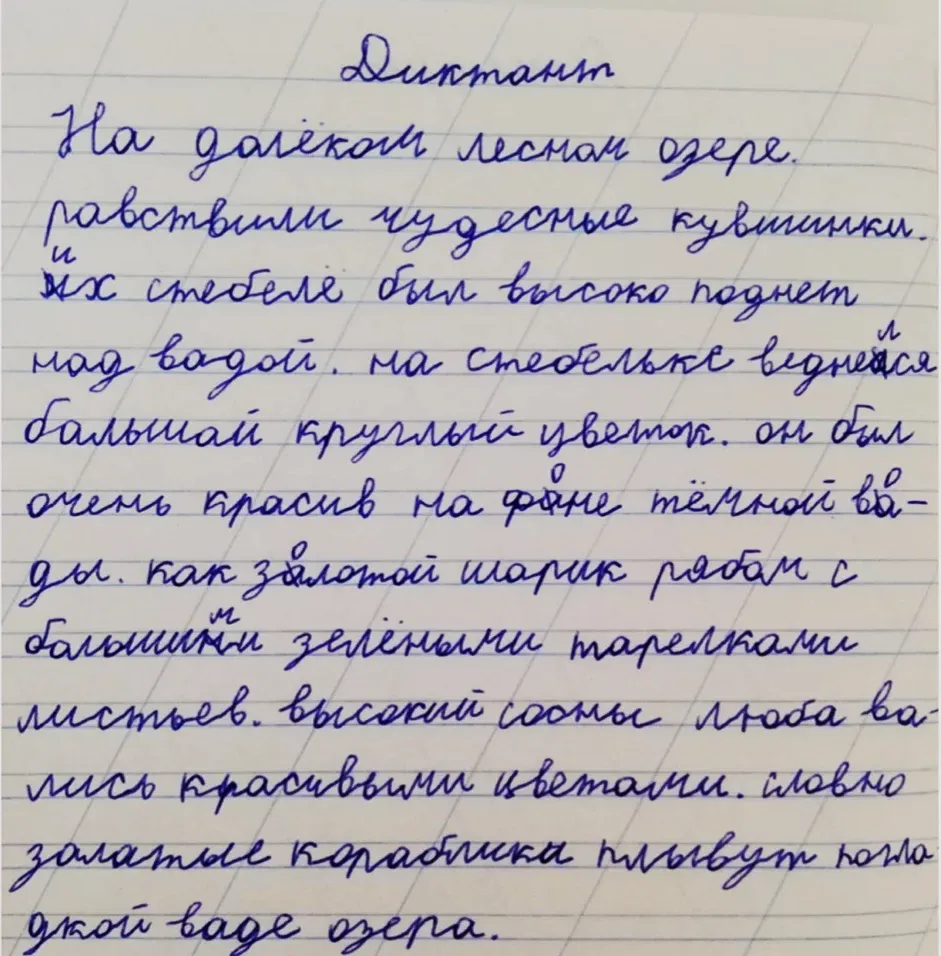 Диктант
На далёком лесном озере.
равствили чудесные кувшинки.
их стебеле был высоко поднет
над вадой. на стебельке веднелся
большай круглый цветок. он был
очень красив на фоне тёмной во-
ды. как золотой шарик рябом с
большими зелёными тарелками
листьев. высокий сосны люба ва-
лись красивыми цветами. словно
залатые кораблики плывут погла
дкой ваде озера.